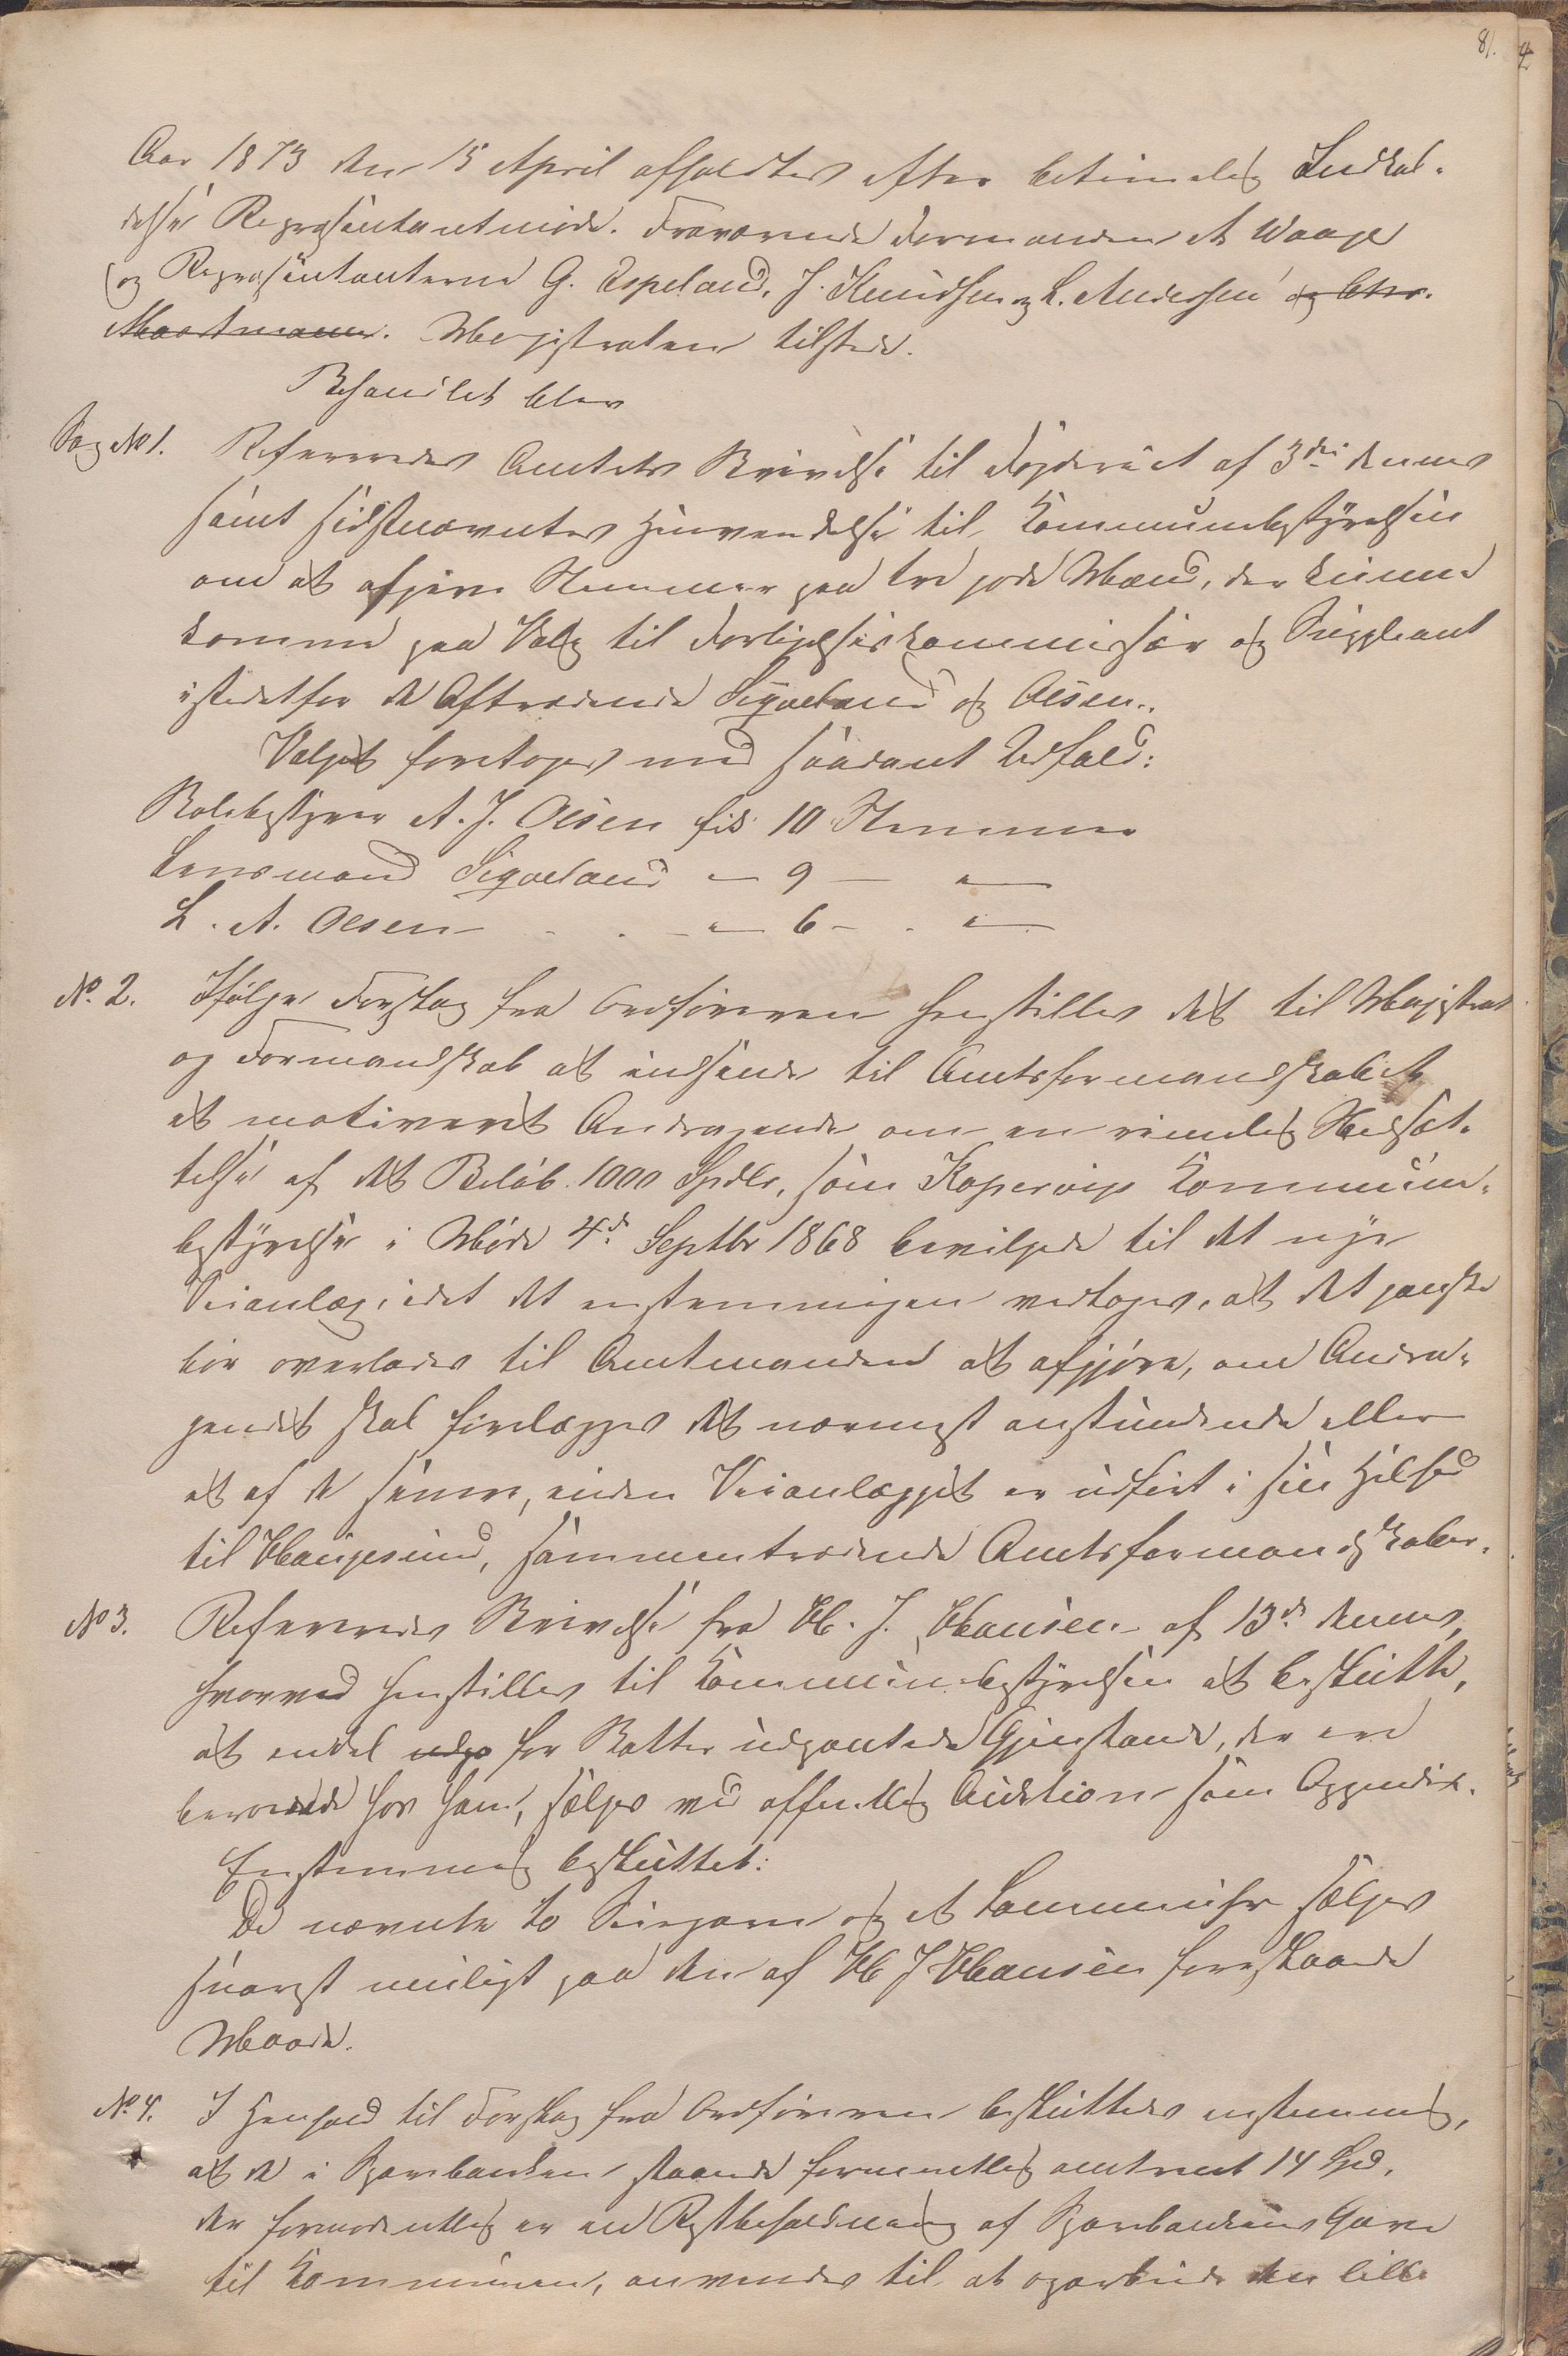 81.
Aar 1873 den 15 April afholdtes efter betimelig Indkal-
delse Repræsentantmøde. Fraværende Formanden A Waage
og Repræsentanterne G. Espeland, J. Knudsen og L. Andersen og Chr.
Maartmann. Magistraten tilstede.
Behandlet blev
Sag No 1. Refereredes Amtets Skrivelse til Fogderiet af 3die dennes
samt sidstnævntes Henvendelse til Kommunebestyrelsen
om at afgive Stemmer paa tre gode Mænd, der kunne
komme paa Valg til Forligelseskommissær og Suppleant
istedetfor de Aftrædende Sigveland og Olsen.
Valget foretoges med saadant Udfald:
Skolebestyrer A. J. Olsen fik 10 Stemmer
Lensmand Sigveland - 9 - "
L. A. Olsen - . . - " 6 - . "
No. 2. Ifølge Forslag fra Ordføreren henstilles det til Magistrat
og Formandskab at indsende til Amtsformandskabet
et motiveret Andragende om en rimelig Nedsæt-
telse af det Beløb 1000 Spdlr, som Kopervigs Kommune-
bestyrelse i Møde 4de Septbr 1868 bevilgede til det nye
Veianlæg, idet det enstemmigen vedtoges, at det ganske
bør overlades til Amtmanden at afgjøre, om Andra-
gendet skal forelægges det nærmest anstundende eller
et af de senere, inden Veianlægget er udført i sin Helhed
til Haugesund, sammentrædende Amtsformandskaber.
No 3. Refereredes Skrivelse fra H. J. Hansen af 13de dennes,
hvorved henstilles til Kommunebestyrelsen at beslutte,
at endel udpa for Skatter udpantede Gjenstande, der ere
beroende hos ham, sælges ved offentlig Auktion som Appendix.
Enstemmig besluttet:
De nævnte to og et Lommeuhr sælges
snarest muligt paa den af H J Hansen foreslaaede
Maade.
No. 4. I Henhold til Forslag fra Ordføreren besluttedes enstemmig,
at de i Sparebanken staaende formentlig omtrent 14 Spd,
der formodentlig er en Restbeholdning af Sparebankens Gave
til Kommunen, anvendes til at oparbeide den lille